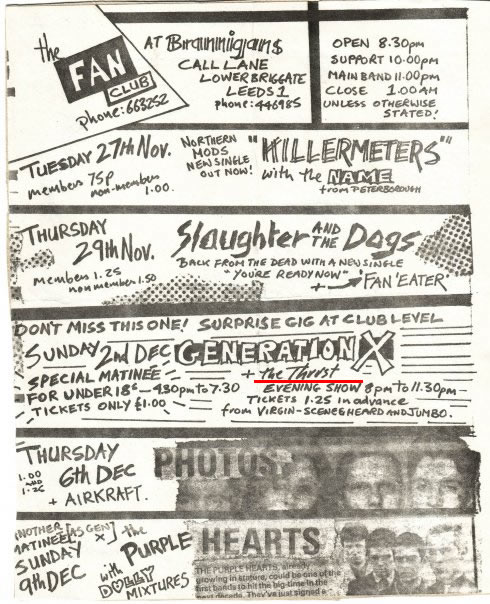 the
FAN
CLUB
phone: 663252
AT Brannnigans
CALL LANE
LOWER BRIGGATE
LEEDS 1
phone: 446985
OPEN 8.30pm
SUPPORT 10.00pm
MAIN BAND 11.00pm
CLOSE 1.00AM
UNLESS OTHERWISE
STATED!
TUESDAY 27th Nov.
members 75p
non-members 1.00.
NORTHERN
MODS
NEW SINGLE
OUT NOW!
"KILLERMETERS"
with the NAME
from PETERBOROUGH
THURSDAY
29th Nov.
members 1.25
non members 1.50
Slaughter AND THE Dogs
BACK FROM THE DEAD WITH A NEW SINGLE
"YOU'RE READY NOW"
+ 'FAN 'EATER'
DON'T MISS THIS ONE! SURPRISE GIG AT CLUB LEVEL
SUNDAY 2nd DEC GENERATION X
+ the Thrust
SPECIAL MATINEE
FOR UNDER 18s - 4.30pm to 7.30
TICKETS ONLY £1.00
EVENING SHOW 8pm to 11.30pm
TICKETS 1.25 in advance
from VIRGIN-SCENE & HEARD AND JUMBO.
THURSDAY
1.00
AND
1.25
6th DEC
+ AIRKRAFT.
PHOTOS
ANOTHER [AS GEN X]
MATINEE
SUNDAY
9th DEC
the
PURPLE
HEARTS
with DOLLY
MIXTURES
THE PURPLE HEARTS, already
growing in stature, could be one of the
first bands to hit the big-time in the
next decade. They've just signed a